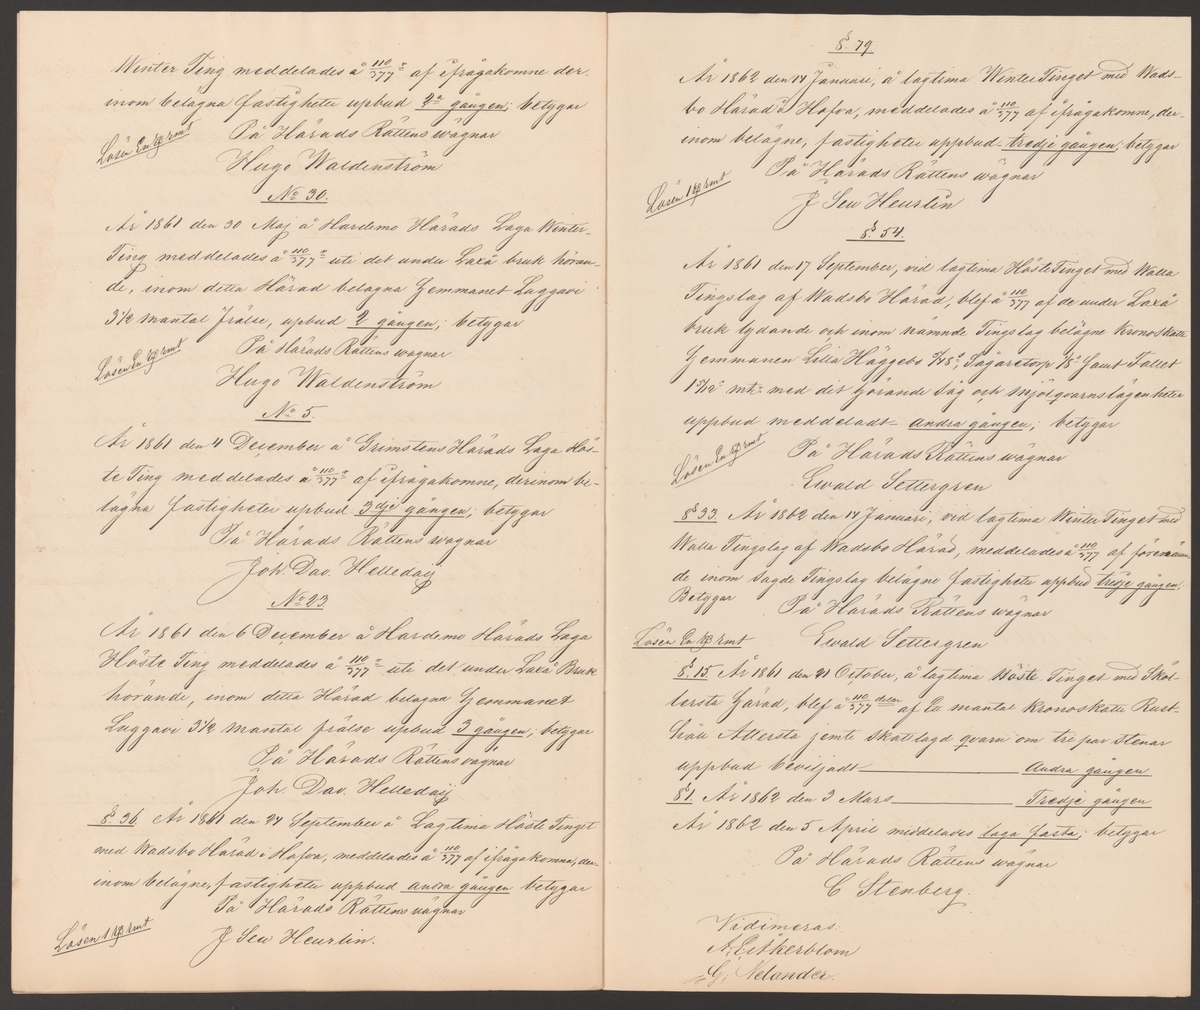 Winter Ting meddelades å 110/377 af ifrågakomne der-
inom belägna fastigheter upbud 2a gången; betygar
På Härads Rättens wägnar
Lösen En rd rmt
Hugo Waldenström
No 30.
År 1861 den 30 Maj å Hardemo Härads Laga Winter-
Ting meddelades å 110/377 uti det under Laxå bruk höran-
de, inom detta Härad belägna Hemmanet Luggavi
3 1/2 mantal Frälse, upbud 2 gången; betygar
På Härads Rättens wägnar
Lösen En rd rmt
Hugo Waldenström
No 5.
År 1861 den 4 December å Grimstens Härads Laga Hös-
te Ting meddelades å 110/377 af ifrågakomne, derinom be-
lägna fastigheter upbud 3dje gången; betygar
På Härads Rättens wägnar
Joh. Dav. Helleday
No 23.
År 1861 den 6 December å Hardemo Härads Laga
Höste Ting meddelades å 110/377 uti det under Laxå Bruk
hörande, inom detta Härad belägna Hemmanet
Luggavi 3 1/2 mantal frälse upbud 3 gången; betygar
På Härads Rättens wägnar
Joh. Dav. Helleday
§. 36. År 1861 den 24 September å Lagtima Höste Tinget
med Wadsbo Härad i Hofva, meddelades å 110/377 af ifrågakomna, der-
inom belägne, fastigheter uppbud andra gången betygar
På Härads Rättens wägnar
Lösen 1 rd rmt
J Seu Heurlin.
§. 79.
År 1862 den 14 Januari, å lagtima WinterTinget med Wads-
bo Härad i Hofva, meddelades å 110/377 af ifrågakomne, der-
inom belägne, fastigheter uppbud tredje gången; betygar
På Härads Rättens wägnar
Lösen 1 rd rmt
J Seu Heurlin
§. 54.
År 1861 den 17 September, vid lagtima HösteTinget med Walla
Tingslag af Wadsbo Härad, blef å 110/377 af de under Laxå
bruk lydande och inom nämnde Tingslag belägne Kronoskatte
Hemmanen Lilla Häggebo, Sågaretorp 1/8 samt Fallet
mtl med dit hörande Såg och mjölqvarnslägenheter
uppbud meddeladt andra gången; betygar
På Härads Rättens wägnar
Lösen En rd rmt
Ewald Settergren
§ 33. År 1862 den 14 Januari, vid lagtima WinterTinget med
Walla Tingslag af Wadsbo Härad, meddelades å 110/377 af förenämn-
de inom sagde Tingslag belägne fastigheter uppbud tredje gången;
Betygar
På Härads Rättens wägnar
Lösen En rd rmt
Ewald Settergren
§. 15. År 1861 den 21 October, å lagtima Höste Tinget med Sköl-
lersta Härad, blef å 110/377 delar af Ett mantal Kronoskatte Rust-
håll Attersta jemte skattlagd qvarn om tre par stenar
uppbud beviljadt Andra gången
§ 1. År 1862 den 3 Mars Tredje gången
År 1862 den 5 April meddelades laga fasta; betygar
På Härads Rättens wägnar
C Stenberg.
Vidimeras:
G. Nelander.